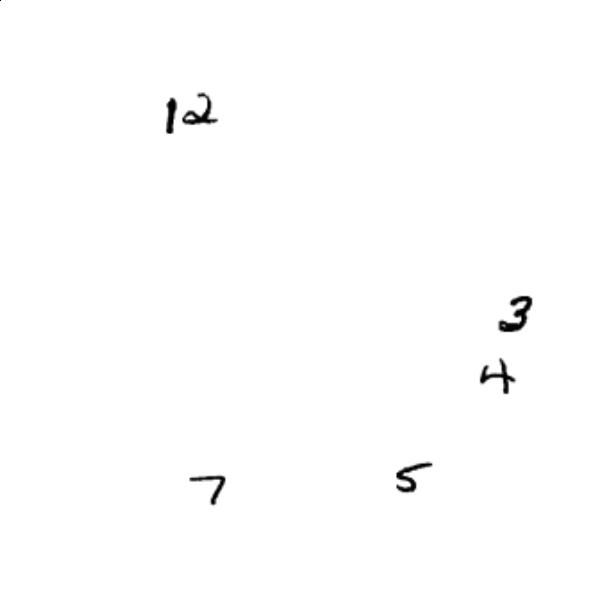 12
3
4
7 5